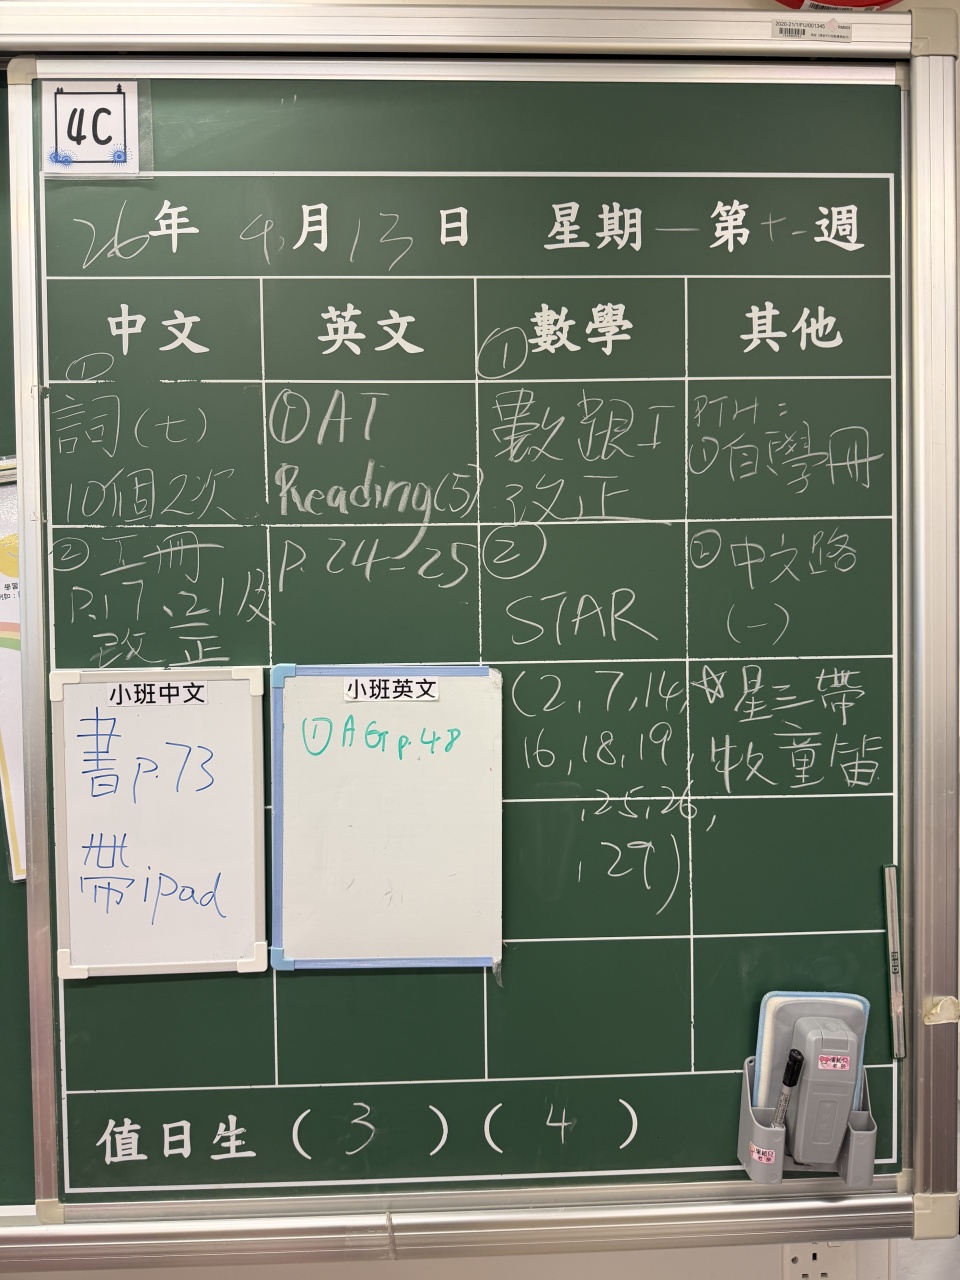 2020-21/1/FU/001345
4C
26年 4月13日 星期一第十一週
中文
英文
數學
其他
①
詞(七)
10個2次
②工冊
P.17、21及
改正
①AT
Reading(5)
P.24-25
①
數跟工
改正
②
STAR
(2,7,14,
16,18,19,
,25,26,
,29)
PTH:
①自學冊
②中文路
(一)
☆星三帶
牧童笛
小班中文
書p.73
帶ipad
小班英文
①AG p.48
值日生(3)(4)